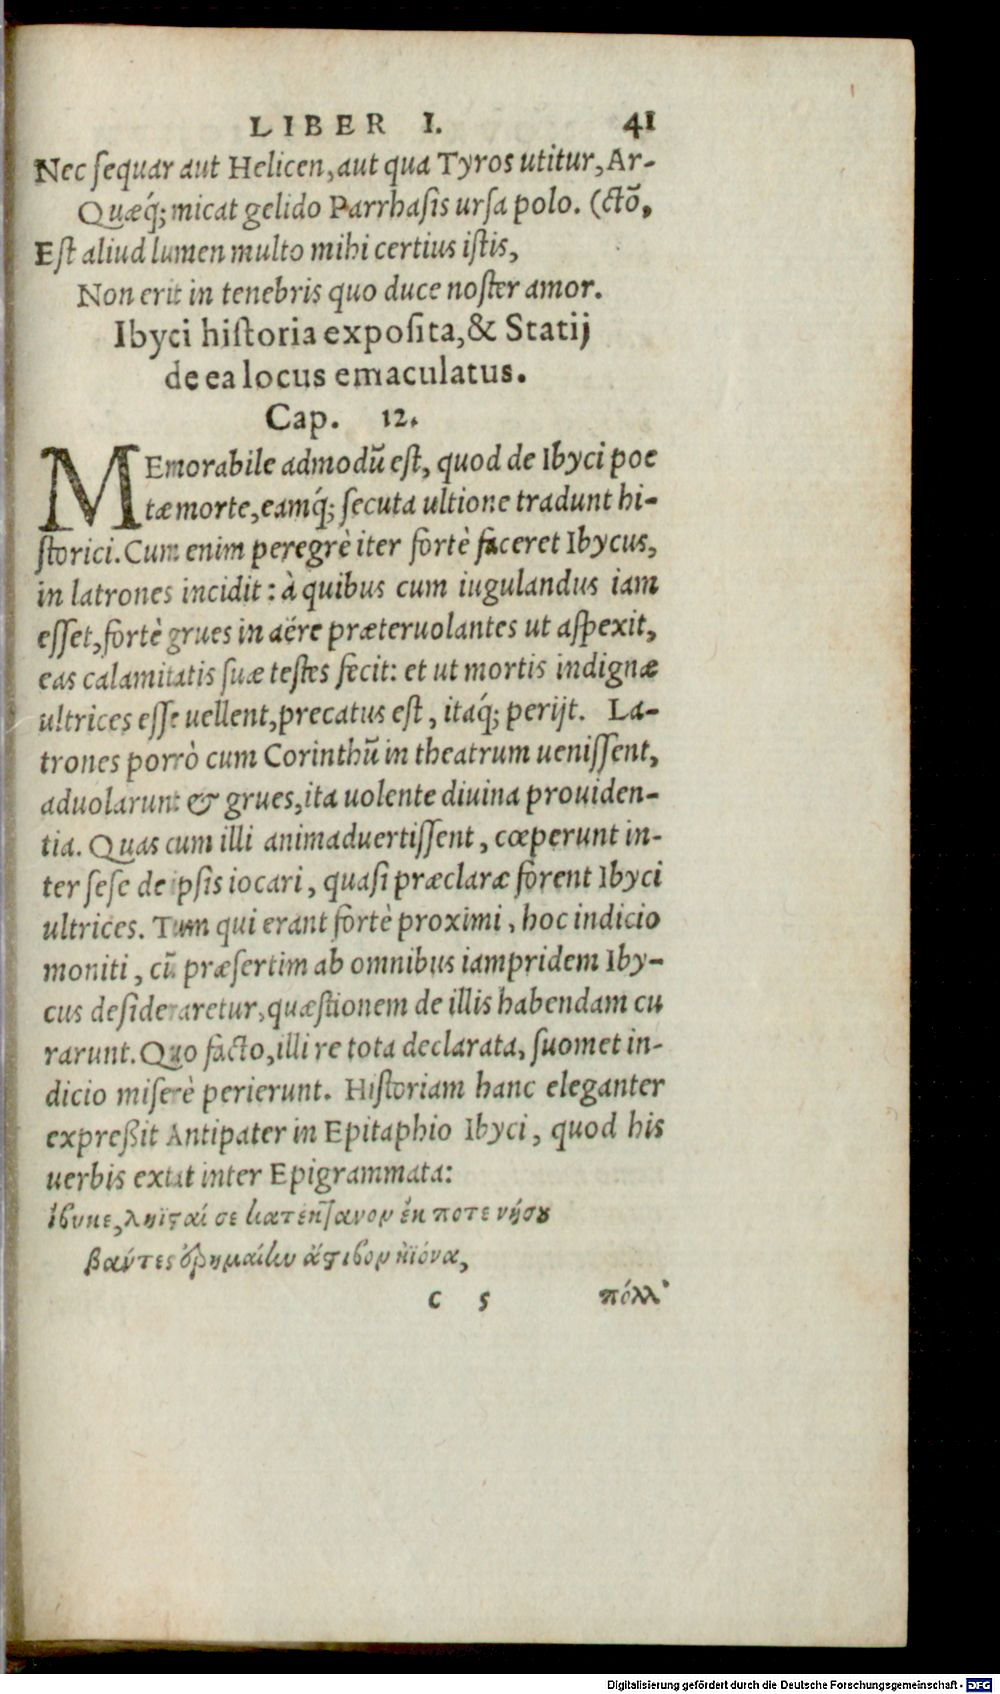 LIBER I. 41
Nec sequar aut Helicen, aut qua Tyros utitur, Ar-
Quæq́; micat gelido Parrhasis ursa polo. (ctō,
Est aliud lumen multo mihi certius istis,
Non erit in tenebris quo duce noster amor.
Ibyci historia exposita, & Statij
de ea locus emaculatus.
Cap. 12.
MEmorabile admodū est, quod de Ibyci poe
tæ morte, eamq́; secuta ultione tradunt hi-
storici. Cum enim peregrè iter fortè faceret Ibycus,
in latrones incidit: à quibus cum iugulandus iam
esset, fortè grues in aëre præteruolantes ut aspexit,
eas calamitatis suæ testes fecit: et ut mortis indignæ
ultrices esse uellent, precatus est, itaq́; perijt. La-
trones porrò cum Corinthū in theatrum uenissent,
aduolarunt & grues, ita uolente diuina prouiden-
tia. Quas cum illi animaduertissent, cœperunt in-
ter sese de ipsis iocari, quasi præclaræ forent Ibyci
ultrices. Tum qui erant fortè proximi, hoc indicio
moniti, cū præsertim ab omnibus iampridem Iby-
cus desideraretur, quæstionem de illis habendam cu
rarunt. Quo facto, illi re tota declarata, suomet in-
dicio miserè perierunt. Historiam hanc eleganter
expreßit Antipater in Epitaphio Ibyci, quod his
uerbis extat inter Epigrammata:
ἴβυκε, ληϊσταί σε κατέκτανον ἔκ ποτε νήσου
βάντες ἐρημαίην ἄστιβον ἠϊόνα,
c 5 πόλλ᾽
Digitalisierung gefördert durch die Deutsche Forschungsgemeinschaft - DFG